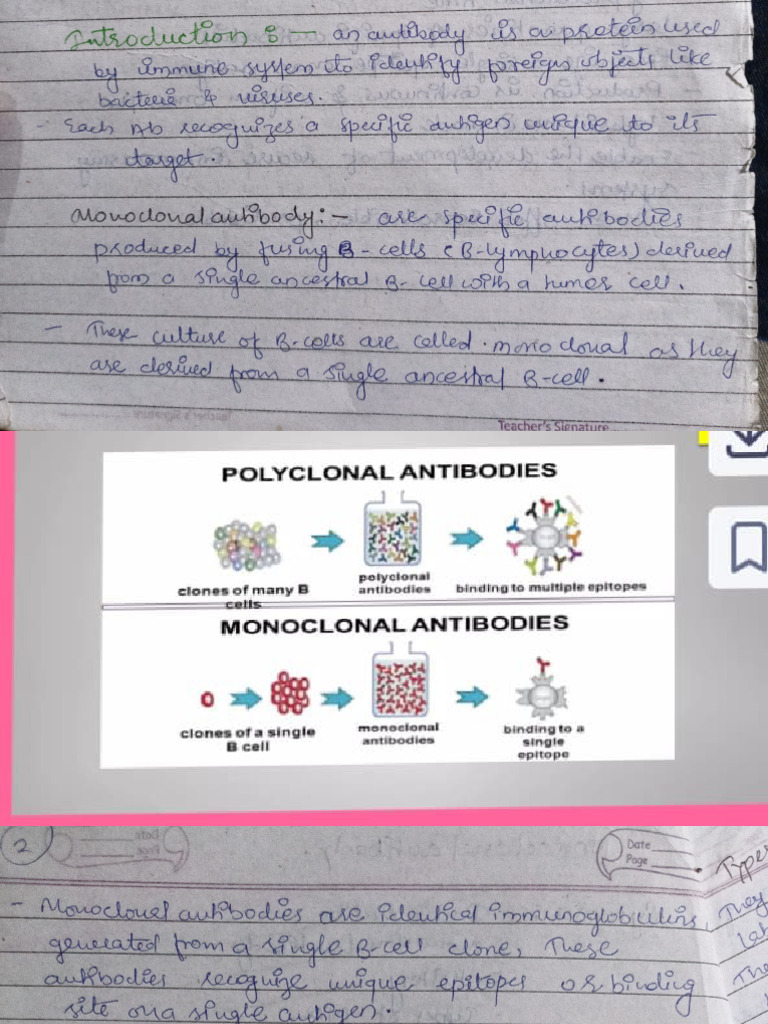 Introduction :— an antibody is a protein used
by immune system to identify foreign objects like
bacteria & viruses.
- Each Ab recognizes a specific antigen unique to its
target.
Monoclonal antibody:— are specific antibodies
produced by fusing B-cells (B-lymphocytes) derived
from a single ancestral B-cell with a tumor cell.
- These culture of B-cells are called monoclonal as they
are derived from a single ancestral B-cell.
Teacher's Signature
POLYCLONAL ANTIBODIES
clones of many B
cells
polyclonal
antibodies
binding to multiple epitopes
MONOCLONAL ANTIBODIES
clones of a single
B cell
monoclonal
antibodies
binding to a
single
epitope
2
Date
Page
Types
- Monoclonal antibodies are identical immunoglobulins,
generated from a single B-cell clone, These
antibodies recognize unique epitopes or binding
site on a single antigen.
They
The